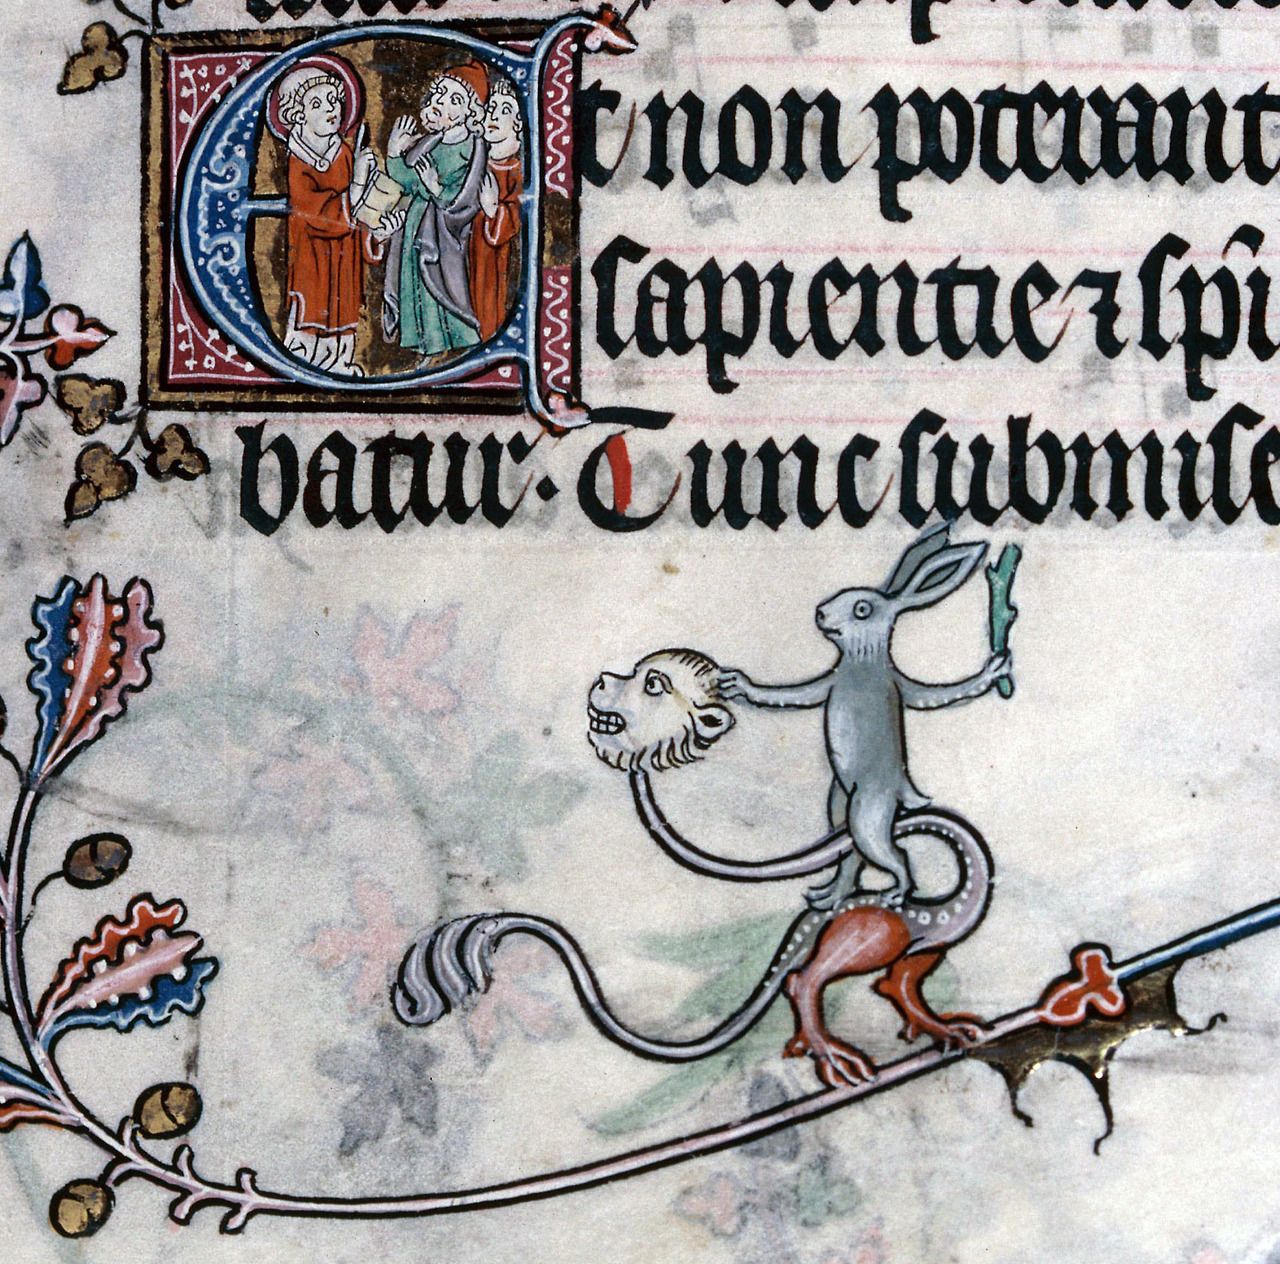 Et non poterant
sapientie ⁊ spi
batur. Tunc submise